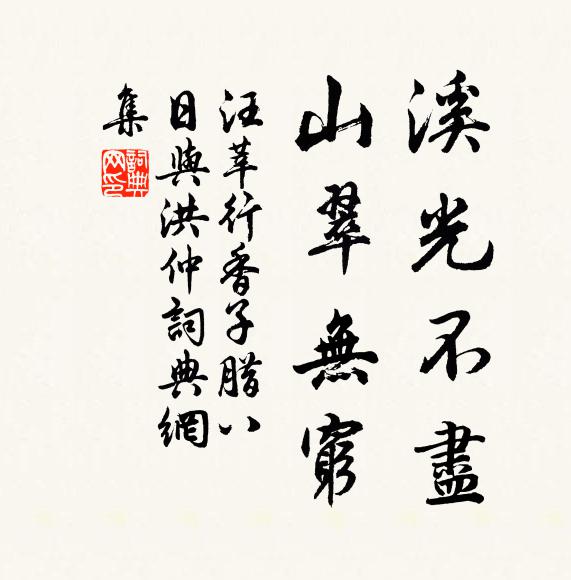 溪光不盡
山翠無窮
汪莘行香子腊八
日與洪仲詞典網
集
詞典
网印